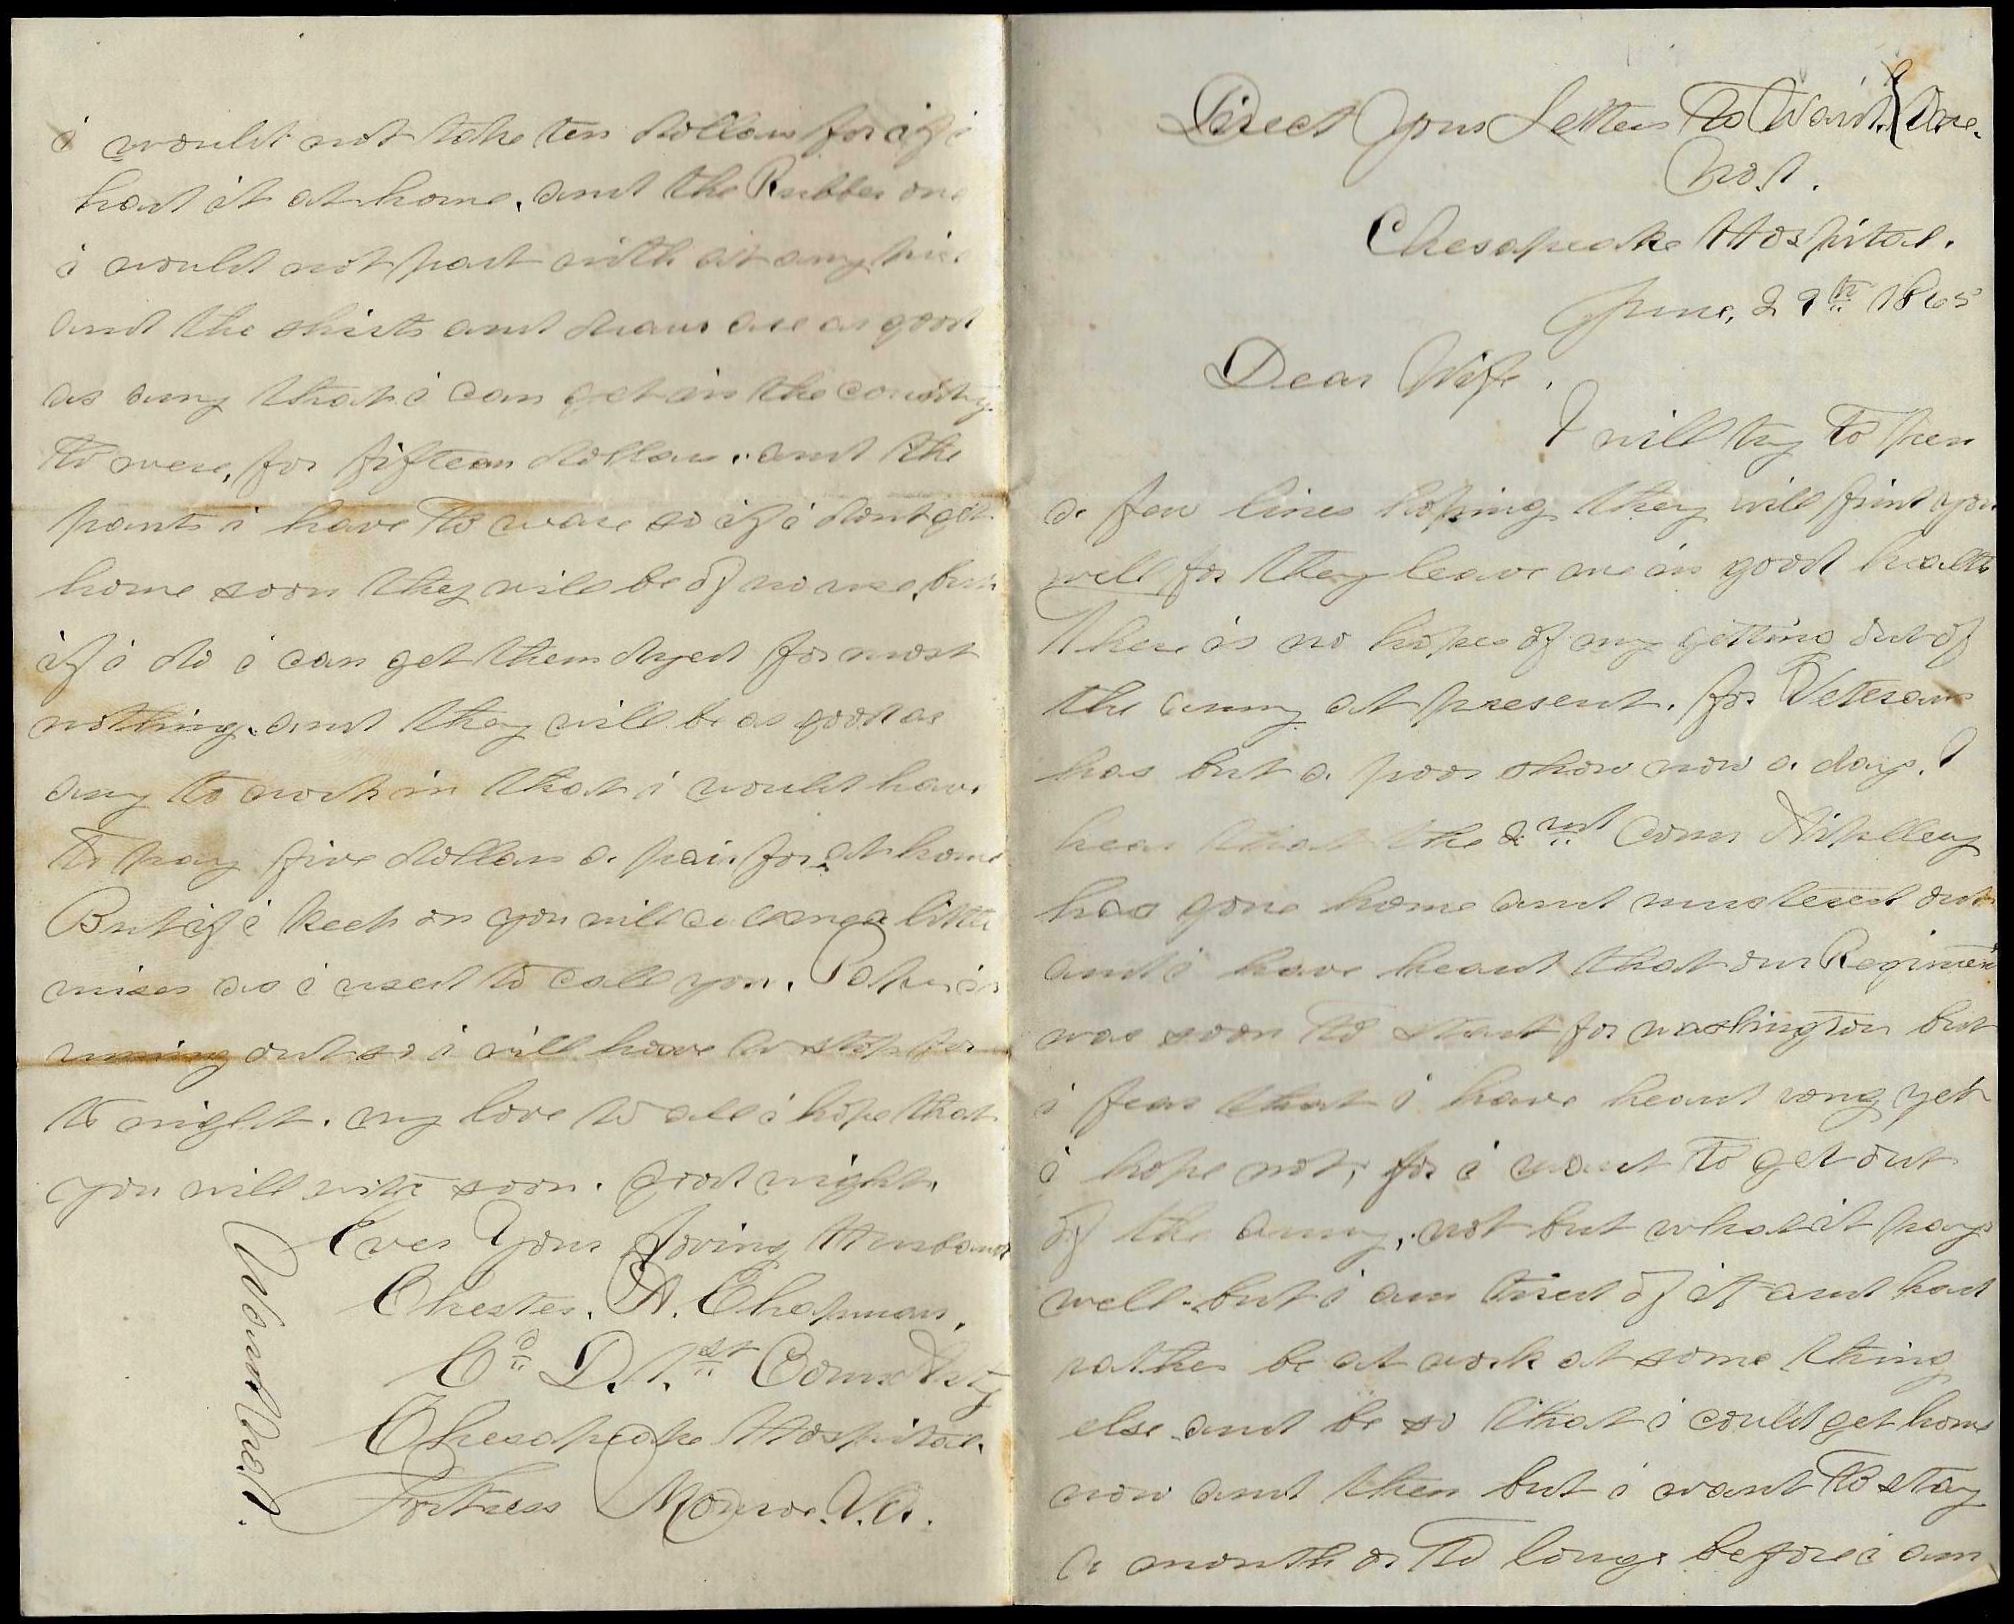 Direct Your Letters To Ward. One.
No. 1.
Chesapeake Hospital.
June, 29th 1865
Dear Wife.
I will try To pen
a few lines hoping they will find you
well for they leave me in good health
There is no hopes of my getting out of
the army at present. for Veterans
has but a poor show now a days. I
hear that the 2nd Conn Artillery
has gone home and mustered out
and i have heard that our Regiment
was soon to start for washington but
i fear that i have heard rong yet
i hope not, for i want To get out
of the army, not but what it pays
well. but i am tired of it and had
rather be at work at some thing
else and be so that i could get home
now and then but i want To stay
a month or To longe before i am
i would not take ten dollars for if i
had it at home. and the Rubber one
i would not part with at any price
and the shirts and draws are as good
as any that i can get in the country
To were, for fifteen dollars. and the
pants i have To ware so if i dont get
home soon they will be of no use, but
if i do i can get them dyed for most
nothing. and they will be as good as
any to work in that i would have
To pay five dollars a pair for at home
But if i keep on you will a little
miser as i used to call you. Paper is
runing out so i will have to stop for
to night. my love to all i hope that
you will write soon. good night.
Ever Your Loving Husband
Chester. A. Chapman.
Co D. 1st Conn Arty
Chesapeake Hospital.
Fortress Monroe. Va.
Ward No. 1.